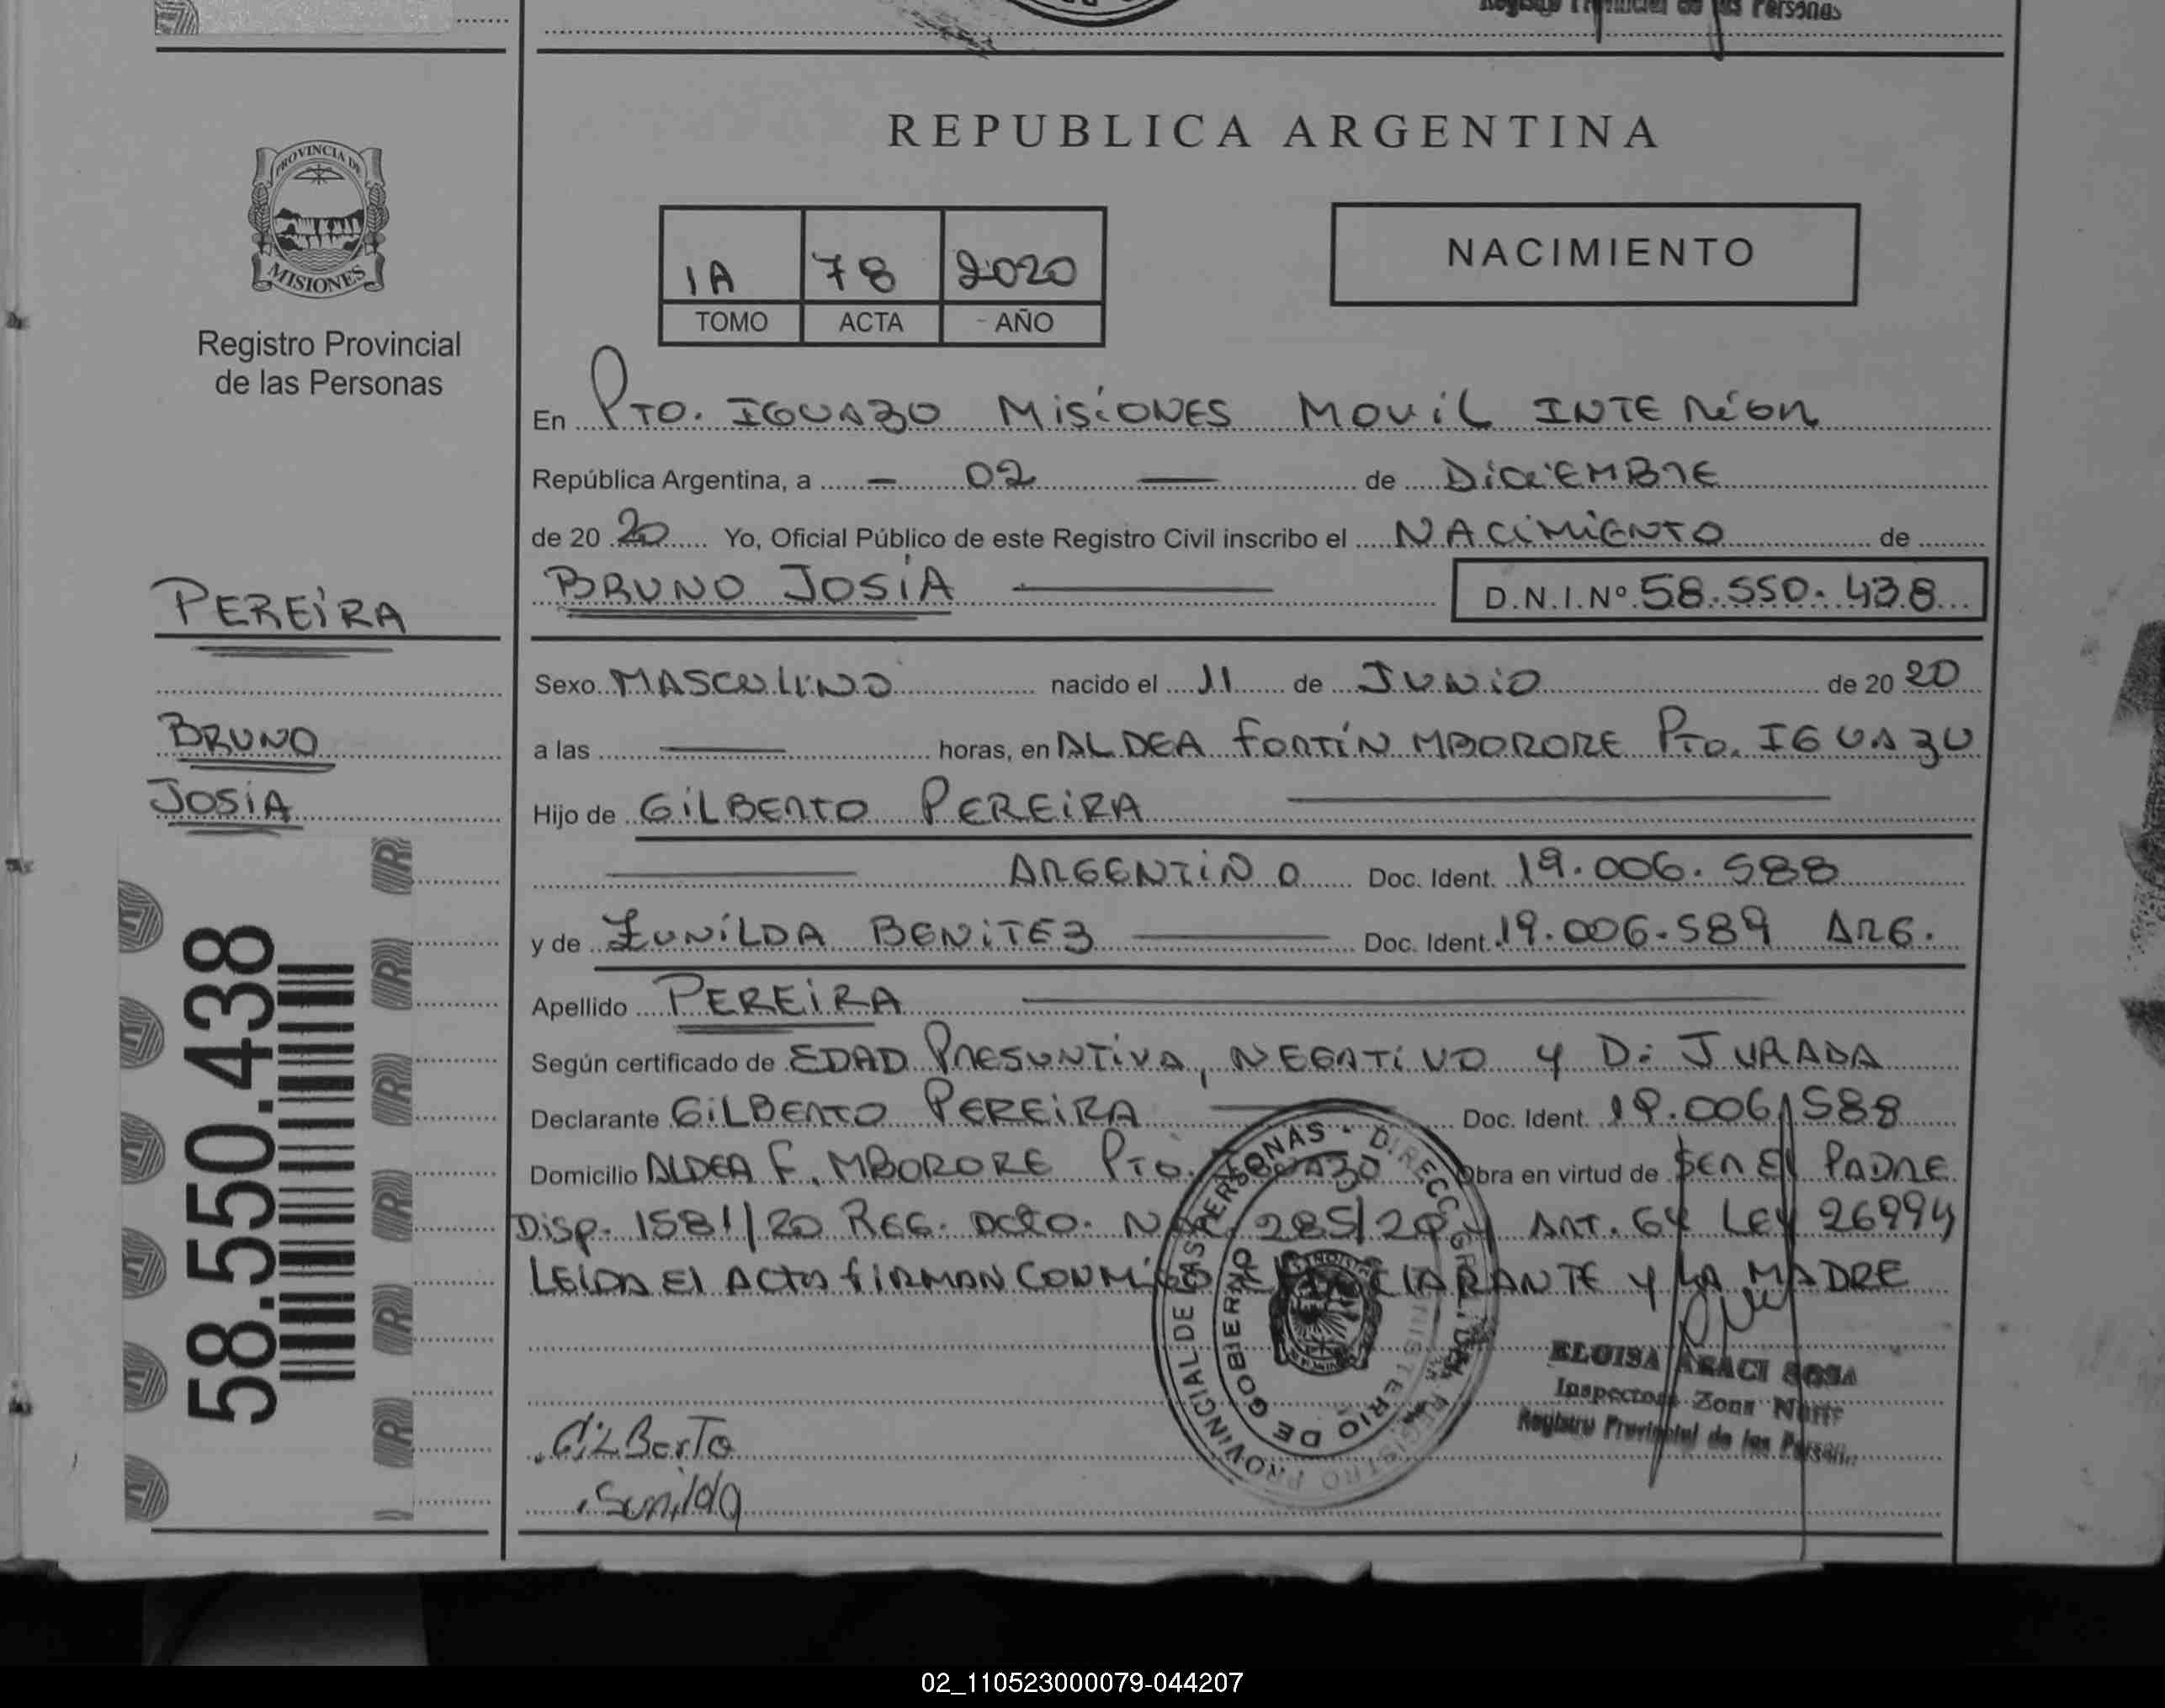 Registro Provincial de las Personas
REPUBLICA ARGENTINA
PROVINCIA DE
MISIONES
Registro Provincial
de las Personas
1A 78 2020
TOMO ACTA AÑO
NACIMIENTO
En PTO. IGUAZO MISIONES MOVIL INTERIOR
República Argentina, a — 02 — de DICIEMBRE
de 20 20 Yo, Oficial Público de este Registro Civil inscribo el NACIMIENTO de
BRUNO JOSIA — D.N.I.Nº 58.550.438
PEREIRA
BRUNO
JOSIA
58.550.438
Sexo MASCULINO nacido el 11 de JUNIO de 20 20
a las — horas, en ALDEA FORTÍN MBORORE PTO. IGUAZU
Hijo de GILBERTO PEREIRA —
— ARGENTINO Doc. Ident. 19.006.588
y de ZUNILDA BENITEZ — Doc. Ident. 19.006.589 ARG.
Apellido PEREIRA —
Según certificado de EDAD PRESUNTIVA, NEGATIVO Y D. JURADA
Declarante GILBERTO PEREIRA — Doc. Ident. 19.006.588
Domicilio ALDEA F. MBORORE PTO. Obra en virtud de SER EL PADRE
Disp. 1581/20 REG. DCTO. 285/20 ART. 64 LEY 26994
LEIDA El ACTA FIRMAN CONMIGO DECLARANTE Y LA MADRE
REGISTRO PROVINCIAL DE LAS PERSONAS - DIRECC. GRAL. DEL
MINISTERIO DE GOBIERNO
ELOISA ARACI SOSA
Inspectora Zona Norte
Registro Provincial de las Personas
GilBerTo
Sunilda
02_110523000079-044207